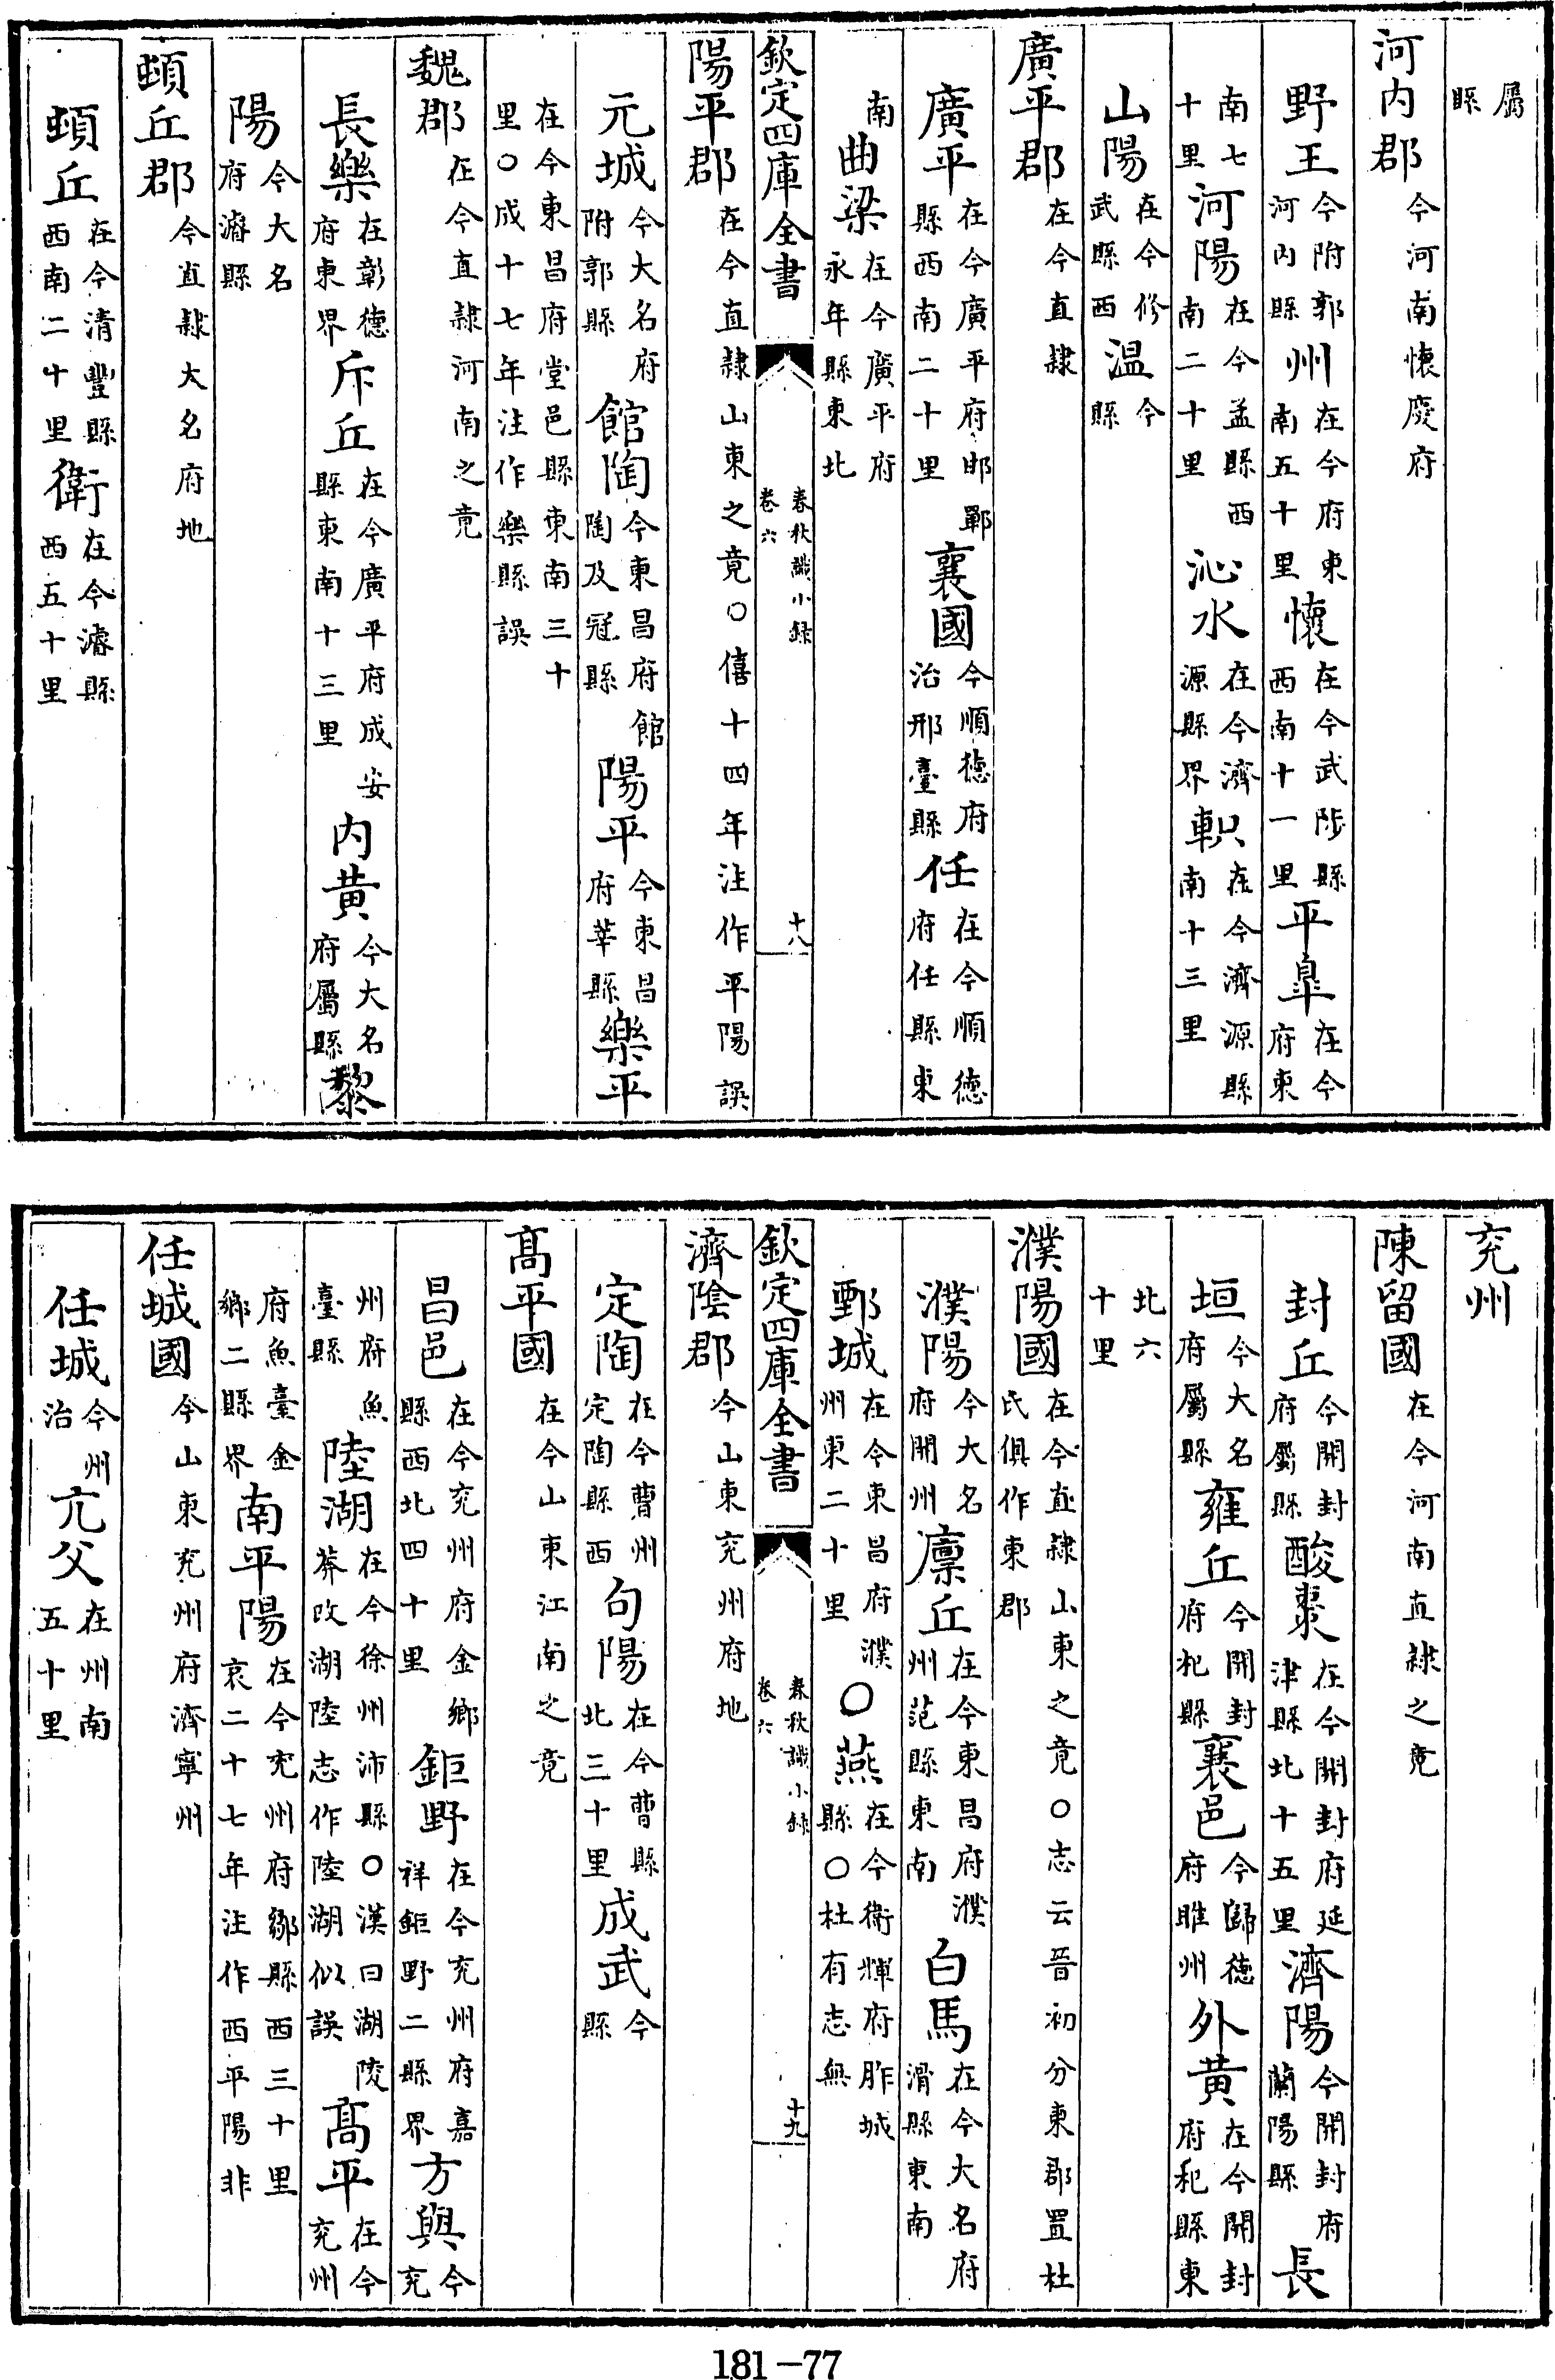 屬縣
河内郡今河南懷慶府
野王今附郭河内縣州在今府東南五十里懷在今武陟縣西南十一里平臯在今府東
南七十里河陽在今孟縣西南二十里沁水在今濟源縣界軹在今濟源縣南十三里
山陽在今修武縣西温今縣
廣平郡在今直隸
廣平在今廣平府邯鄲縣西南二十里襄國今順德府治邢臺縣任在今順德府任縣東
南曲梁在今廣平府永年縣東北
欽定四庫全書 春秋識小録 卷六 十八
陽平郡在今直隸山東之竟○僖十四年注作平陽誤
元城今大名府附郭縣館陶今東昌府館陶及冠縣陽平今東昌府莘縣樂平
在今東昌府堂邑縣東南三十里○成十七年注作樂縣誤
魏郡在今直隸河南之竟
長樂在彰德府東界斥丘在今廣平府成安縣東南十三里内黄今大名府屬縣黎
陽今大名府濬縣
頓丘郡今直隸大名府地
頓丘在今清豐縣西南二十里衛在今濬縣西五十里
兖州
陳留國在今河南直隸之竟
封丘今開封府屬縣酸棗在今開封府延津縣北十五里濟陽今開封府蘭陽縣長
垣今大名府屬縣雍丘今開封府杞縣襄邑今歸德府睢州外黄在今開封府杞縣東
北六十里
濮陽國在今直隸山東之竟○志云晉初分東郡置杜氏俱作東郡
濮陽今大名府開州廪丘在今東昌府濮州范縣東南白馬在今大名府滑縣東南
鄄城在今東昌府濮州東二十里○燕在今衛輝府胙城縣○杜有志無
欽定四庫全書 春秋識小録 卷六 十九
濟陰郡今山東兖州府地
定陶在今曹州定陶縣西句陽在今曹縣北三十里成武今縣
高平國在今山東江南之竟
昌邑在今兖州府金鄉縣西北四十里鉅野在今兖州府嘉祥鉅野二縣界方與今兖
州府魚臺縣陸湖在今徐州沛縣○漢曰湖陵莽改湖陸志作陸湖似誤高平在今兖州
府魚臺金鄉二縣界南平陽在今兖州府鄒縣西三十里哀二十七年注作西平陽非
任城國今山東兖州府濟寧州
任城今州治亢父在州南五十里
181-77